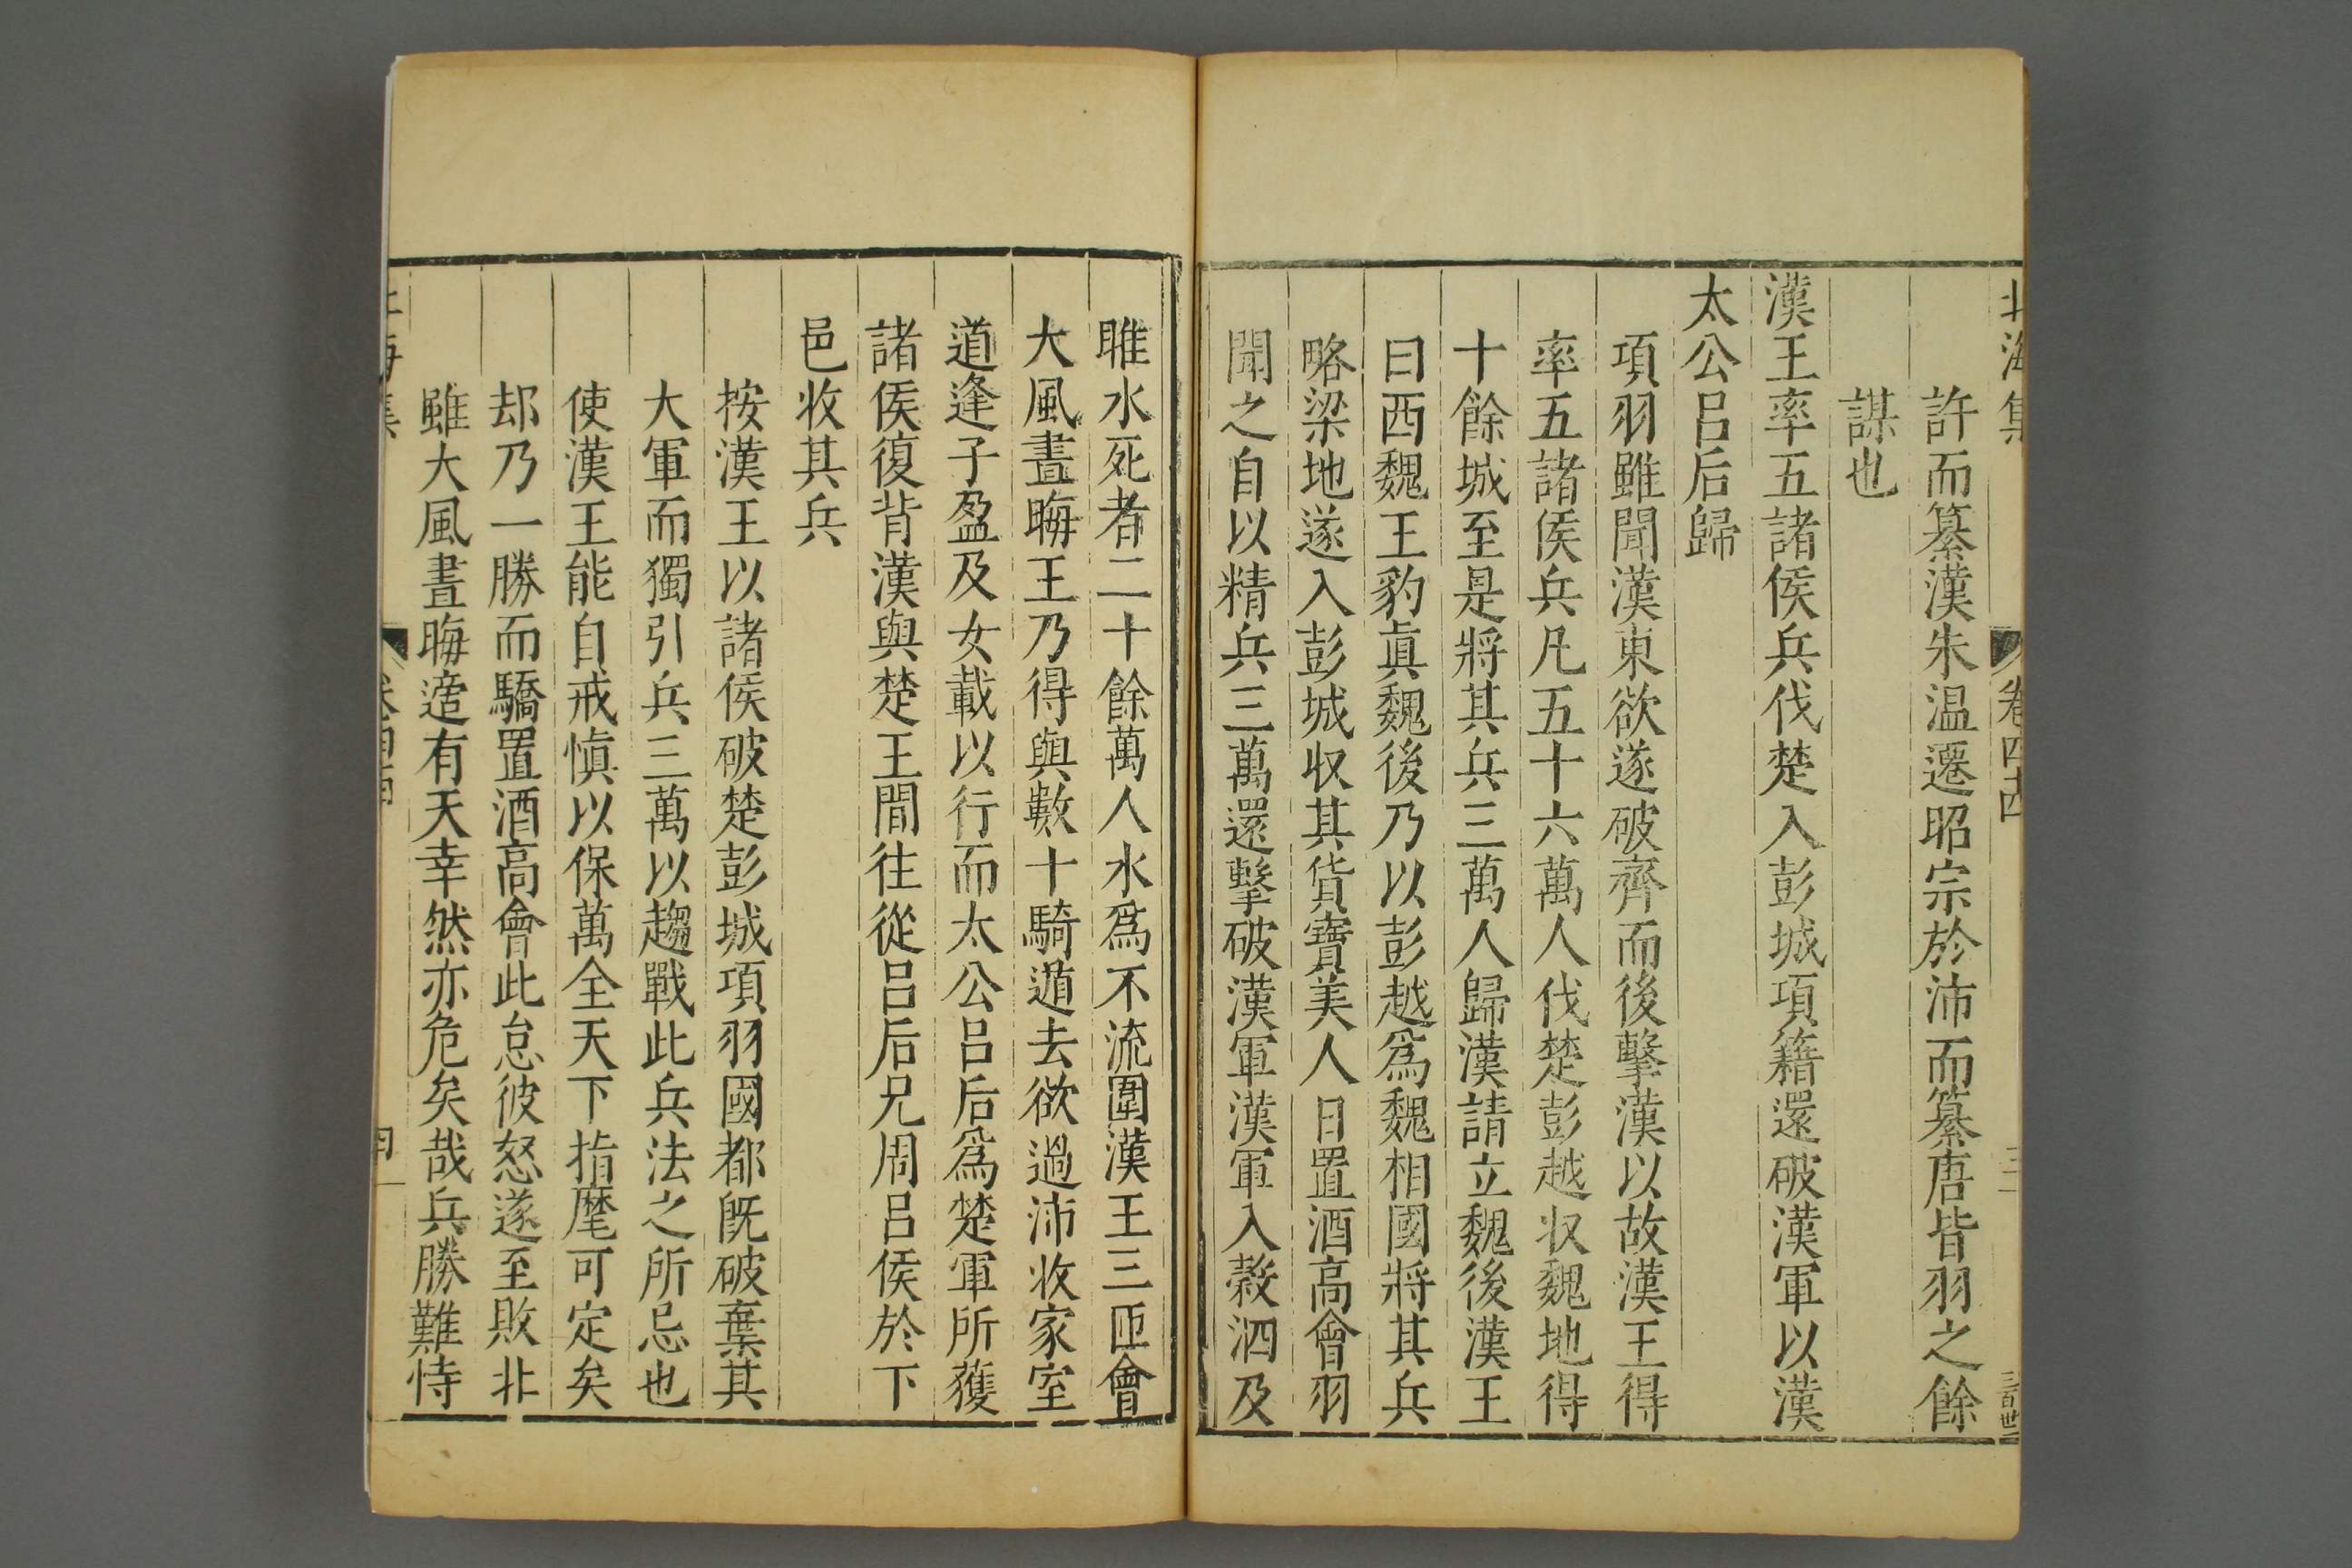 北海集
卷四十四
三
許而篡漢朱温遷昭宗於沛而篡唐皆羽之餘
謀也
漢王率五諸侯兵伐楚入彭城項籍還破漢軍以漢
太公吕后歸
項羽雖聞漢東欲遂破齊而後擊漢以故漢王得
率五諸侯兵凡五十六萬人伐楚彭越収魏地得
十餘城至是將其兵三萬人歸漢請立魏後漢王
曰西魏王豹眞魏後乃以彭越爲魏相國將其兵
略梁地遂入彭城収其貨寳美人日置酒高會羽
聞之自以精兵三萬還擊破漢軍漢軍入穀泗及
睢水死者二十餘萬人水爲不流圍漢王三匝會
大風晝晦王乃得與數十騎遁去欲過沛收家室
道逢子盈及女載以行而太公吕后爲楚軍所獲
諸侯復背漢與楚王間往從吕后兄周吕侯於下
邑收其兵
按漢王以諸侯破楚彭城項羽國都旣破棄其
大軍而獨引兵三萬以趨戰此兵法之所忌也
使漢王能自戒愼以保萬全天下指麾可定矣
却乃一勝而驕置酒高會此怠彼怒遂至敗北
雖大風晝晦適有天幸然亦危矣哉兵勝難恃